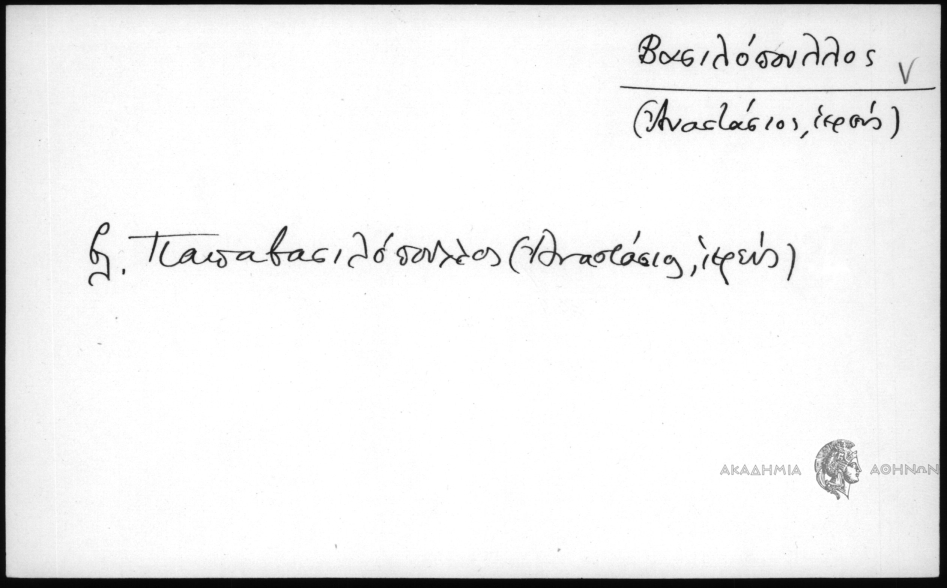 Βασιλόπουλλος V
(Ἀναστάσιος, ἱερεύς)
βλ. Παπαβασιλόπουλλος (Ἀναστάσιος, ἱερεύς)
ΑΚΑΔΗΜΙΑ ΑΘΗΝΩΝ